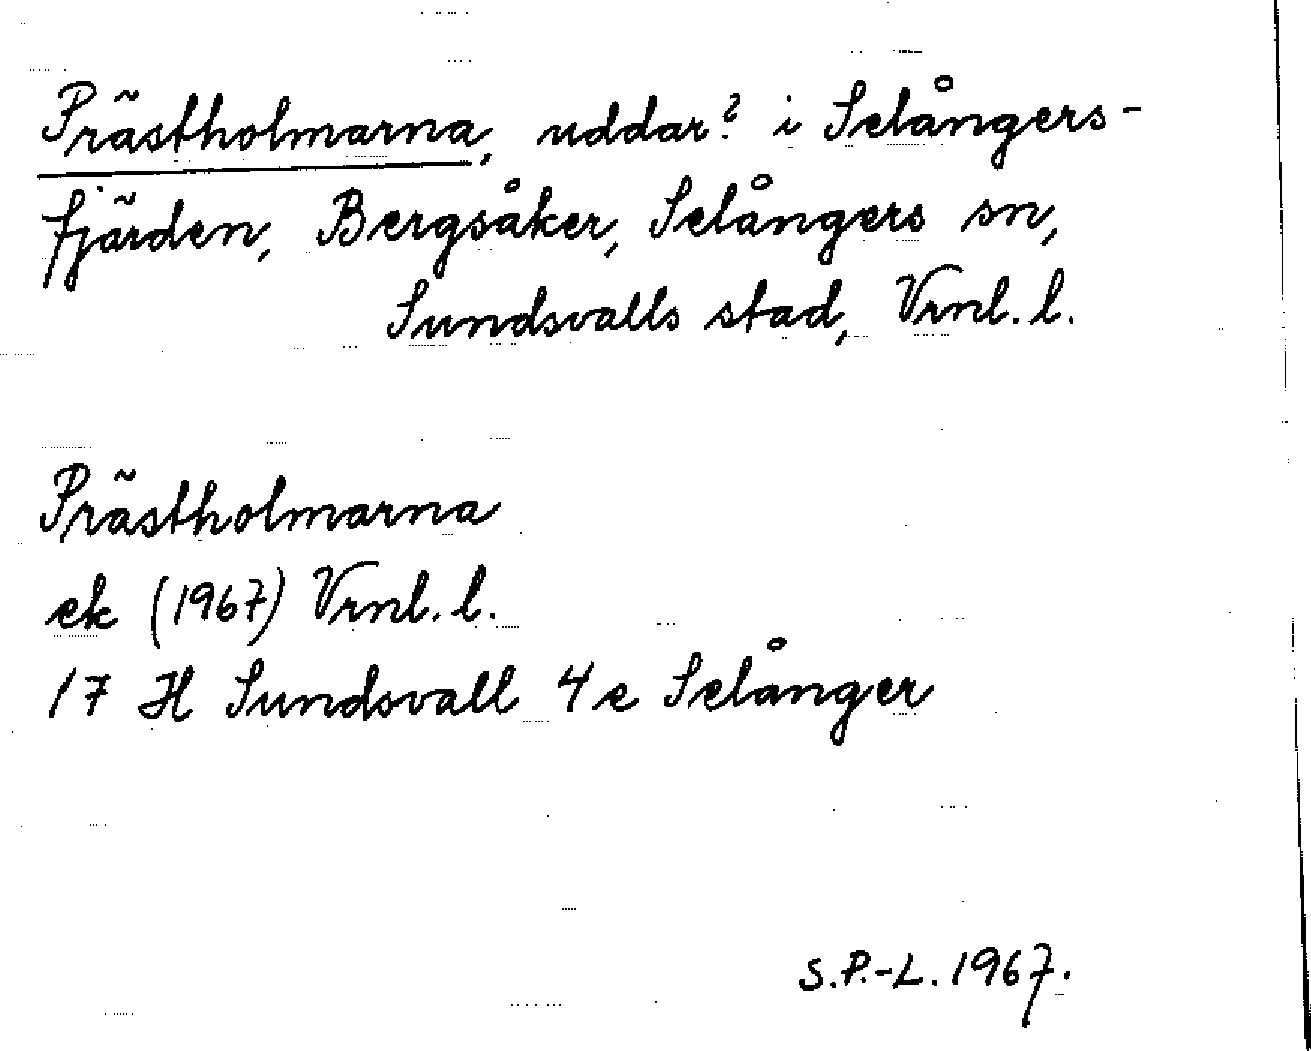 Prästholmarna, uddar? i Selångers-
fjärden, Bergsåker, Selångers sn,
Sundsvalls stad, Vrnl. l.
Prästholmarna
ek (1967) Vrnl. l.
17 H Sundsvall 4e Selånger
S.P.-L. 1967.